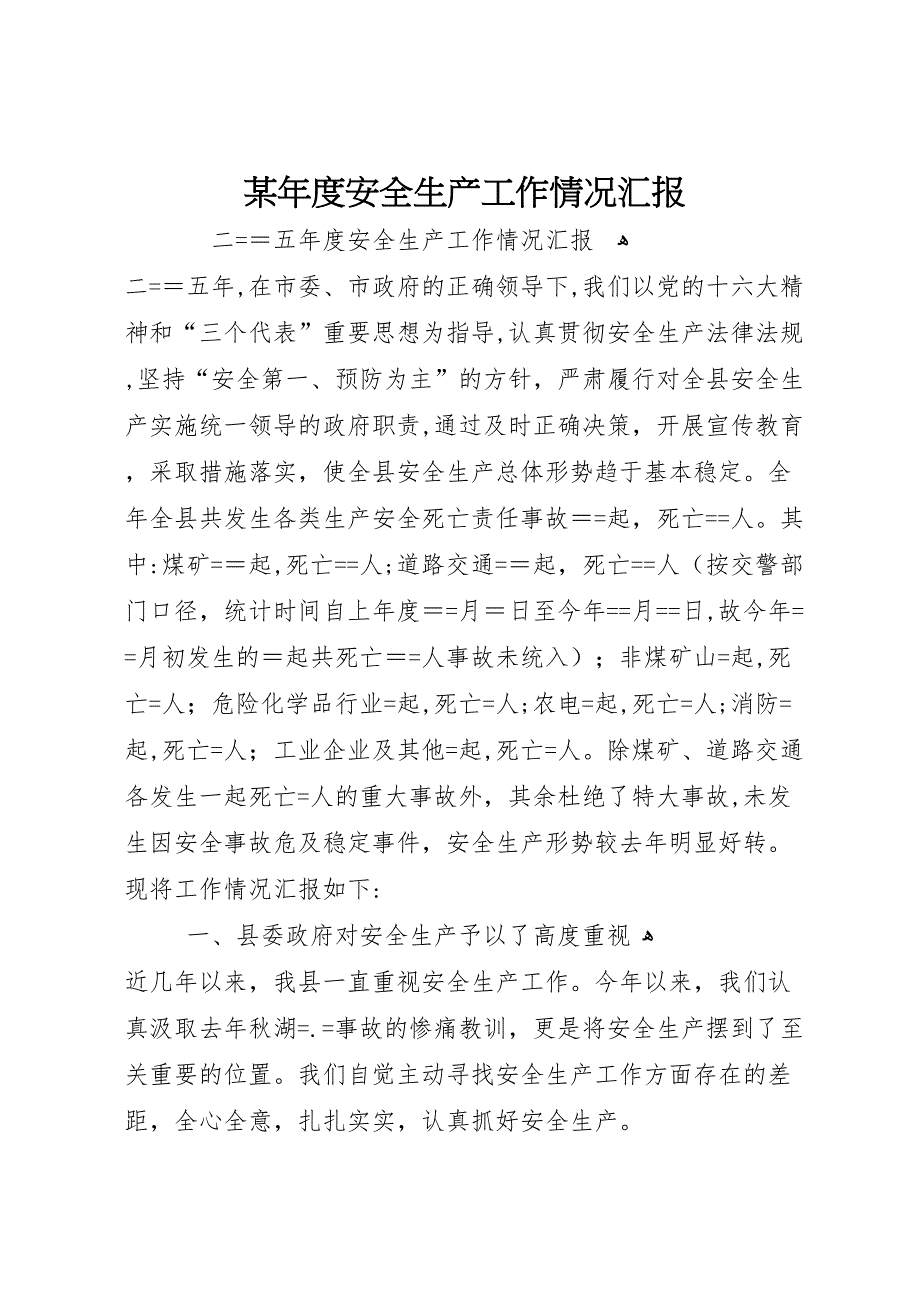 某年度安全生产工作情况汇报
二=＝五年度安全生产工作情况汇报 ﻫ
二=＝五年,在市委、市政府的正确领导下,我们以党的十六大精
神和“三个代表”重要思想为指导,认真贯彻安全生产法律法规
,坚持“安全第一、预防为主”的方针，严肃履行对全县安全生
产实施统一领导的政府职责,通过及时正确决策，开展宣传教育
，采取措施落实，使全县安全生产总体形势趋于基本稳定。全
年全县共发生各类生产安全死亡责任事故＝=起，死亡==人。其
中:煤矿=＝起,死亡==人;道路交通=＝起，死亡==人（按交警部
门口径，统计时间自上年度＝=月＝日至今年==月==日,故今年=
=月初发生的＝起共死亡＝=人事故未统入）；非煤矿山=起,死
亡=人；危险化学品行业=起,死亡=人;农电=起,死亡=人;消防=
起,死亡=人；工业企业及其他=起,死亡=人。除煤矿、道路交通
各发生一起死亡=人的重大事故外，其余杜绝了特大事故,未发
生因安全事故危及稳定事件，安全生产形势较去年明显好转。
现将工作情况汇报如下:
一、县委政府对安全生产予以了高度重视 ﻫ
近几年以来，我县一直重视安全生产工作。今年以来，我们认
真汲取去年秋湖=.=事故的惨痛教训，更是将安全生产摆到了至
关重要的位置。我们自觉主动寻找安全生产工作方面存在的差
距，全心全意，扎扎实实，认真抓好安全生产。